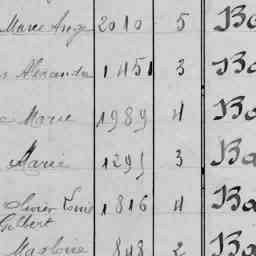 Marie Ange 2010 5 Ba
Alexandre 1451 3 Ba
Marie 1989 4 Ba
Marie 1295 3 Ba
Olivier Louis 1816 4 Ba
Gilbert
Magloire 848 2 Ba